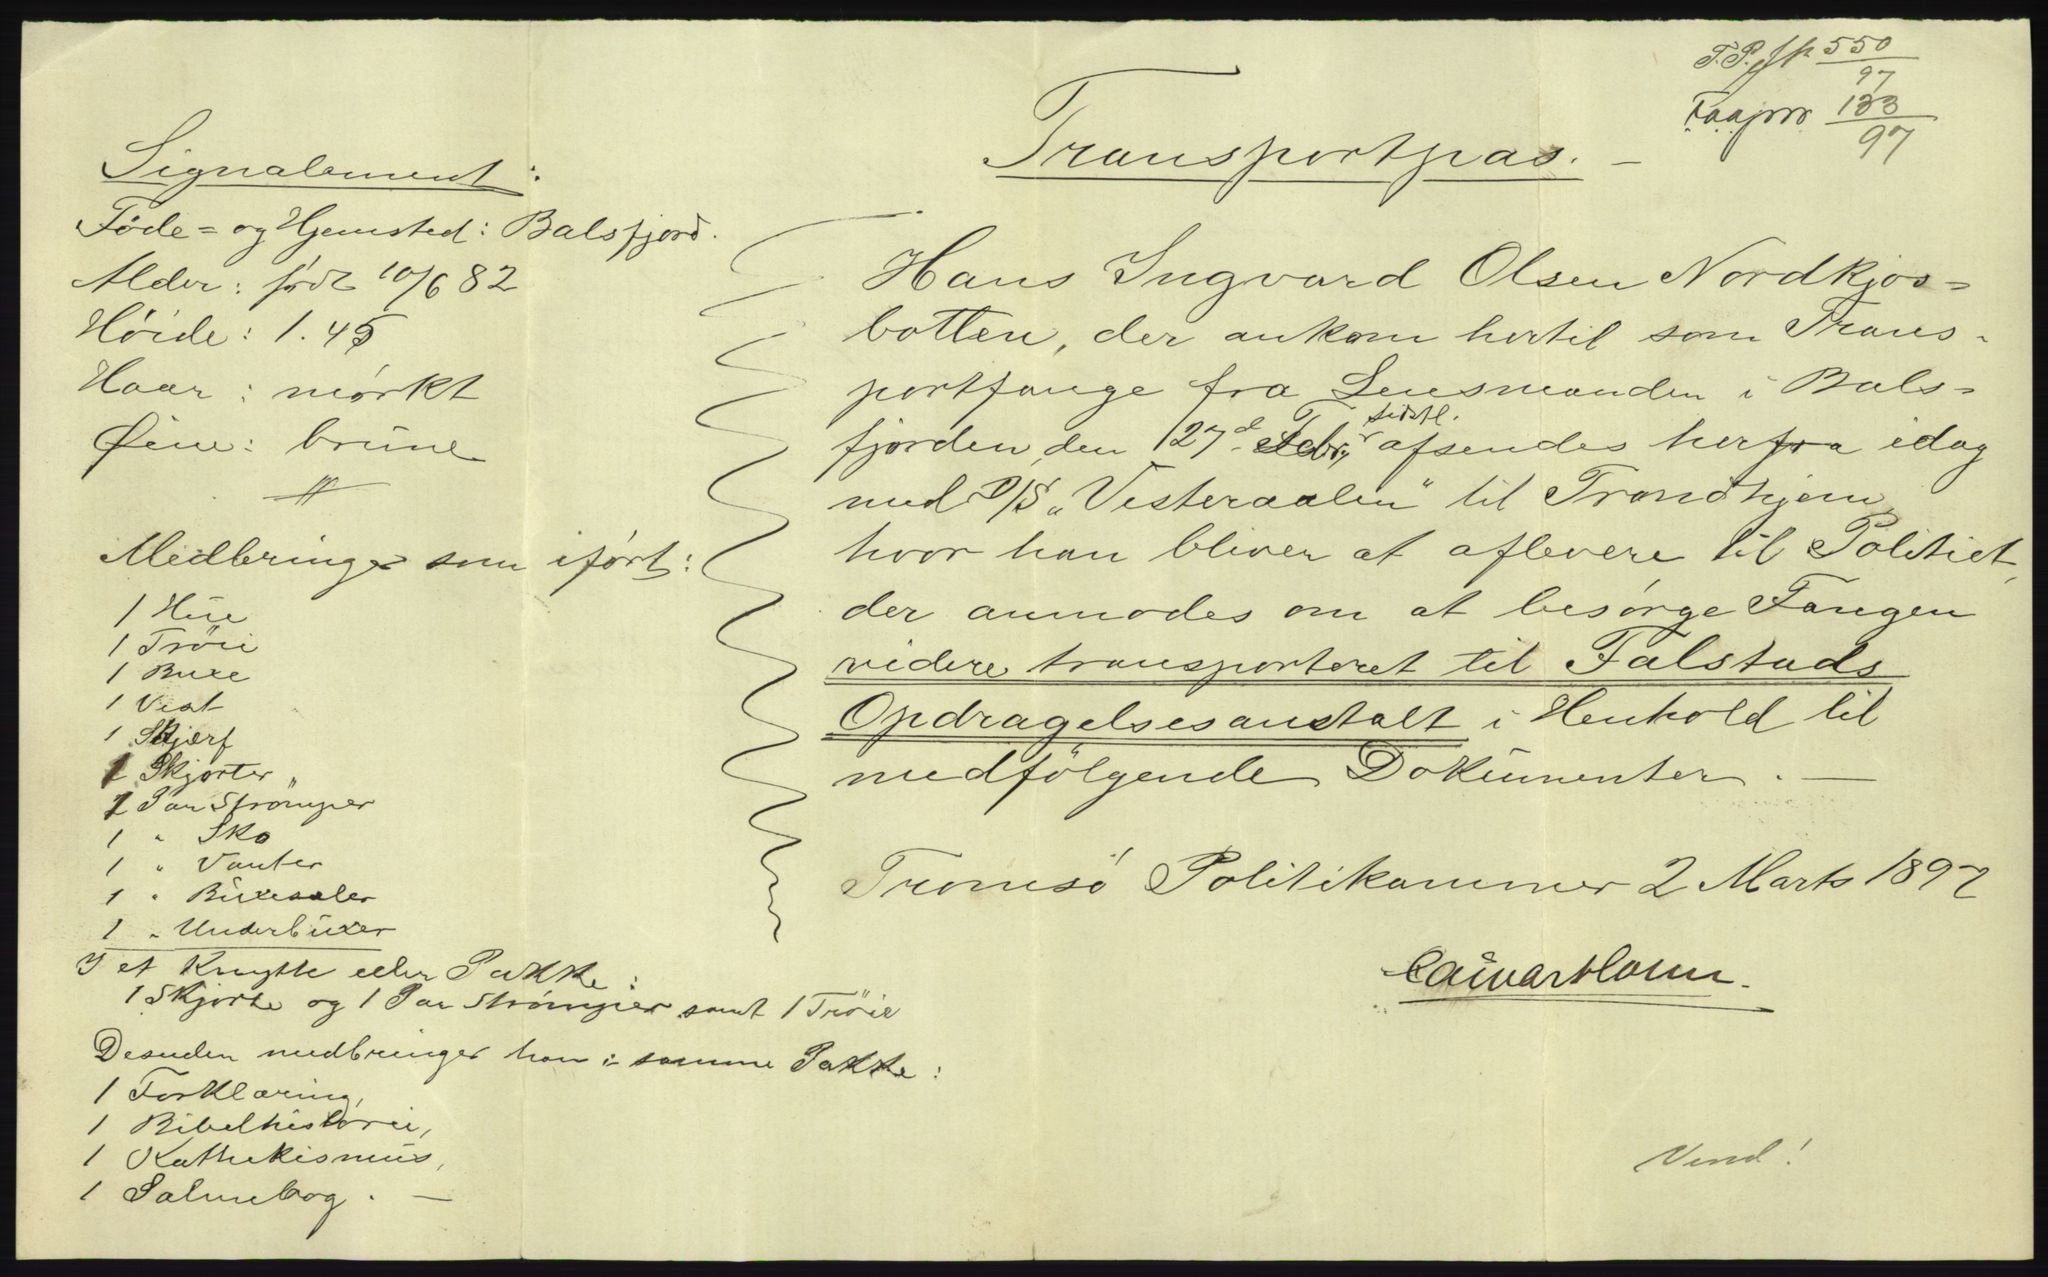 T. P. jk 550/97
133/97
Transportpas. —
Signalement:
Føde= og Hjemsted: Balsfjord.
Alder: født 10/6 82
Høide: 1.45
Haar: mørkt
Øine: brune
Medbringes som iført:
1 Hue
1 Trøie
1 Buxe
1 Vest
1 Skjærf
1 Skjorter „
1 Par Strømper
1 „ Sko
1 „ Vanter
1 „ Buxeseler
1 „ Underbuxer
I et Knytte eller Pakke:
1 Skjorte og 1 Par Strømper samt 1 Trøie
Desuden medbringer han i samme Pakke:
1 Forklaring,
1 Bibelhistorie,
1 Kathekismus,
1 Salmebog. —
Hans Ingvard Olsen Nordkjos=
botten, der ankom hertil som Trans-
portfange fra Lensmanden i Bals=
fjorden den 27d Febr. sidstl. afsendes herfra idag
med D/S „Vesteraalen“ til Trondhjem,
hvor han bliver at aflevere til Politiet,
der anmodes om at besørge Fangen
videre transporteret til Falstads
Opdragelsesanstalt i Henhold til
medfølgende Dokumenter. —
Tromsø Politikammer 2 Marts 1897
Vend!